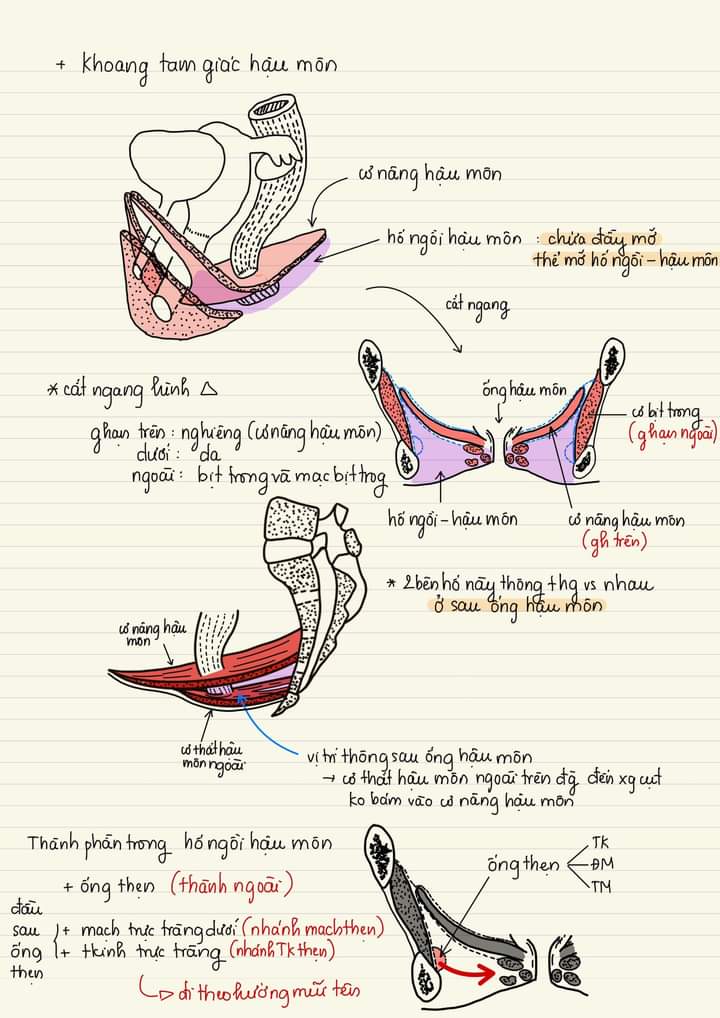 + Khoang tam giác hậu môn
cơ nâng hậu môn
hố ngồi hậu môn : chứa đầy mỡ
thể mỡ hố ngồi – hậu môn
cắt ngang
* cắt ngang hình △
ghạn trên : nghiêng (cơ nâng hậu môn)
dưới : da
ngoài : bịt trong và mạc bịt trog
ống hậu môn
cơ bịt trong
(ghạn ngoài)
hố ngồi – hậu môn
cơ nâng hậu môn
(gh trên)
* 2 bên hố này thông thg vs nhau
ở sau ống hậu môn
cơ nâng hậu
môn
cơ thắt hậu
môn ngoài
vị trí thông sau ống hậu môn
→ cơ thắt hậu môn ngoài trên đg đến xg cụt
ko bám vào cơ nâng hậu môn
Thành phần trong hố ngồi hậu môn
+ ống thẹn (thành ngoài)
đầu
sau
ống
thẹn
+ mạch trực tràng dưới (nhánh mạch thẹn)
+ tkinh trực tràng (nhánh TK thẹn)
↳ đi theo hướng mũi tên
ống thẹn
TK
ĐM
TM